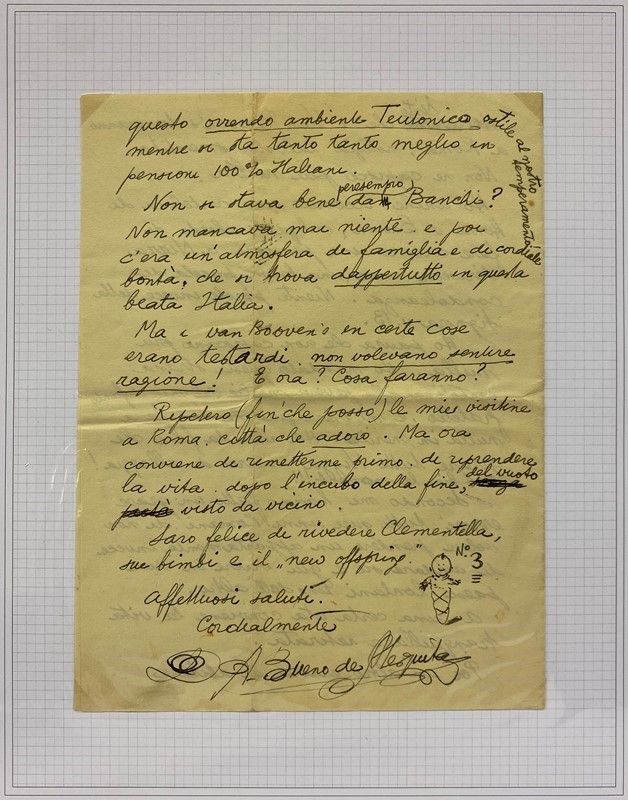 questo orrendo ambiente Teutonico, ostile al nostro temperamento
mentre si sta tanto tanto meglio in
pensioni 100% Italiani.
Non si stava bene peresempio da Banchi?
Non mancava mai niente e poi
c'era un'atmosfera di famiglia e di cordiale
bontà, che si trova dappertutto in questa
beata Italia.
Ma i van Booven's in certe cose
erano testardi, non volevano sentire
ragione! E ora? Cosa faranno?
Ripeterò (fin'che posso) le mie visitine
a Roma, città che adoro. Ma ora
conviene di rimetterme primo, di riprendere
la vita dopo l'incubo della fine, del vuoto
visto da vicino.
Saro felice di rivedere Clementella,
sue bimbi e il „new offspring"
No. 3
Affettuosi saluti.
Cordialmente
A. Bueno de Mesquita